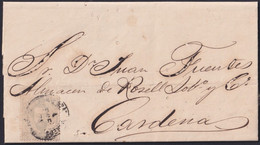 Sr. Dn. Juan Fuentes
Almacen de Rosell Sobo. y Ca.
Cardena